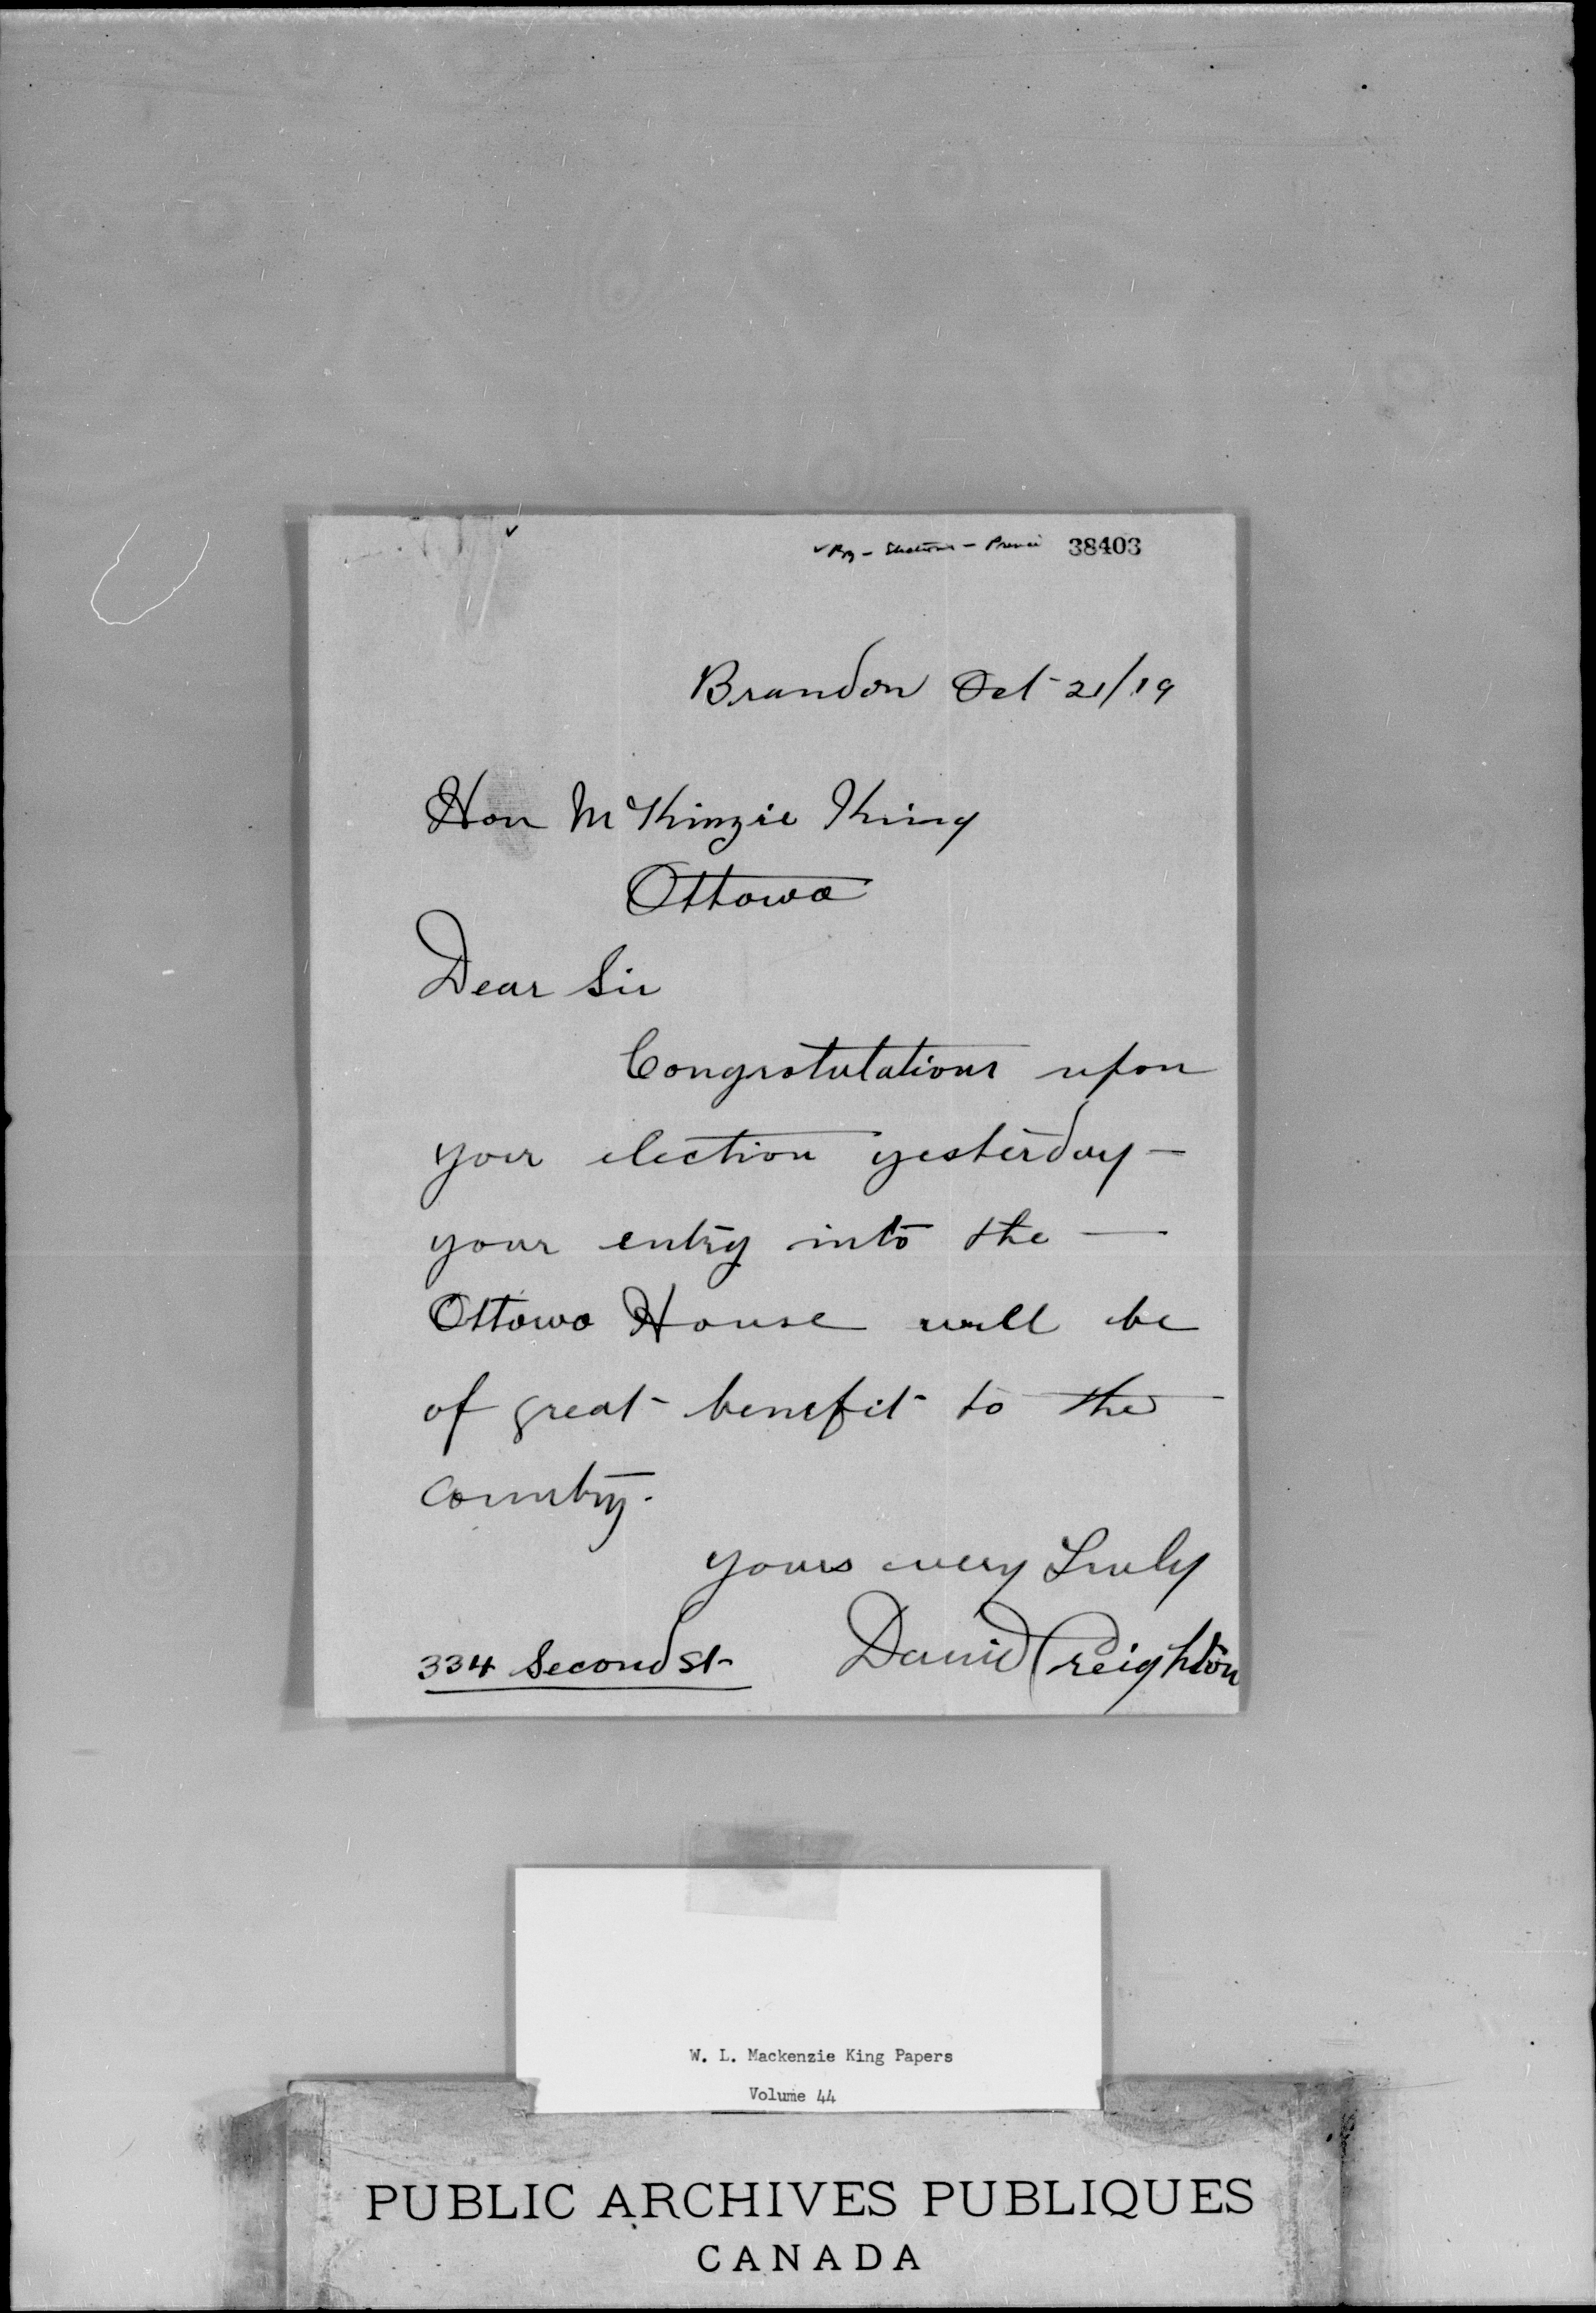 By - Elections - Prince 38403
Brandon Oct 21/19
Hon McKinzie King
Ottowa
Dear Sir
Congratulations upon
your election yesterday -
your entry into the -
Ottowa House will be
of great benefit to the
country.
yours very Truly
334 Second St David Creighton
W. L. Mackenzie King Papers
Volume 44
PUBLIC ARCHIVES PUBLIQUES
CANADA